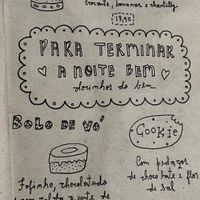 crocante, bananas e chantilly
17,90
PARA TERMINAR
A NOITE BEM
docinhos do bem
BOLO DE VÓ
Cookie
Com pedaços
de chocolate e flor
de sal
Fofinho, chocolatudo